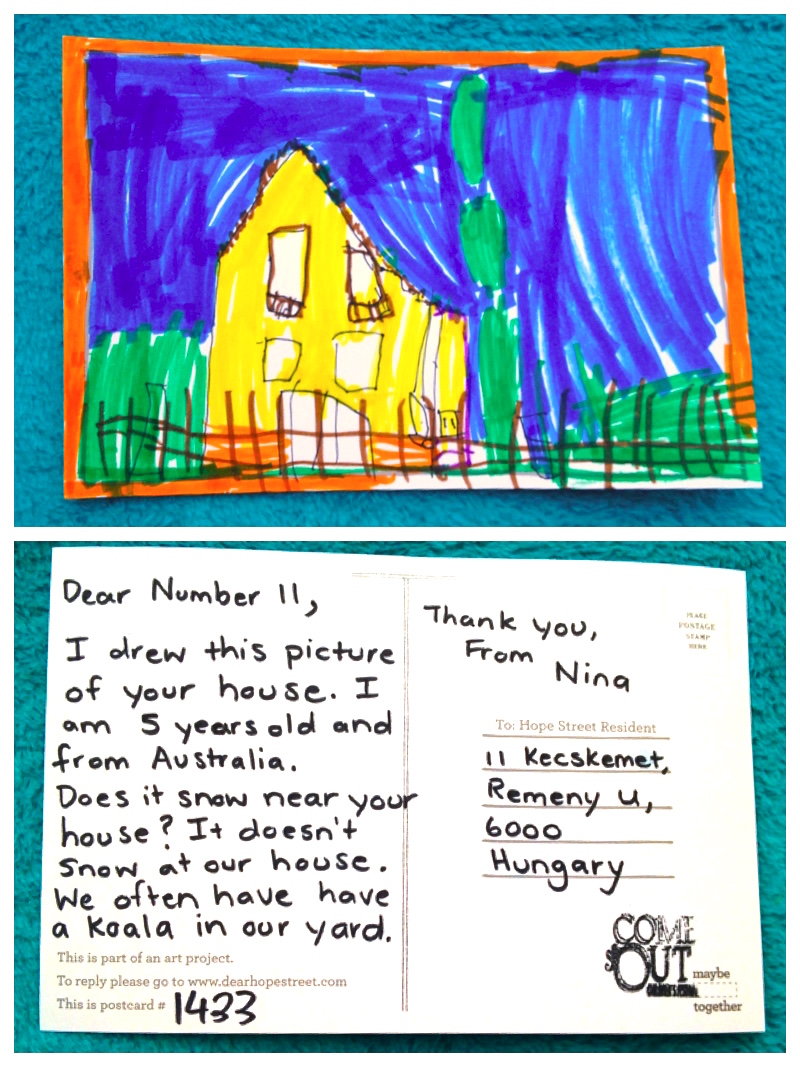 Dear Number 11,
I drew this picture
of your house. I
am 5 years old and
from Australia.
Does it snow near your
house? It doesn't
snow at our house.
We often have have
a Koala in our yard.
This is part of an art project.
To reply please go to www.dearhopestreet.com
This is postcard # 1433
Thank you,
From Nina
PLACE
POSTAGE
STAMP
HERE
To: Hope Street Resident
11 Kecskemet,
Remeny U,
6000
Hungary
COME
OUT
maybe
together